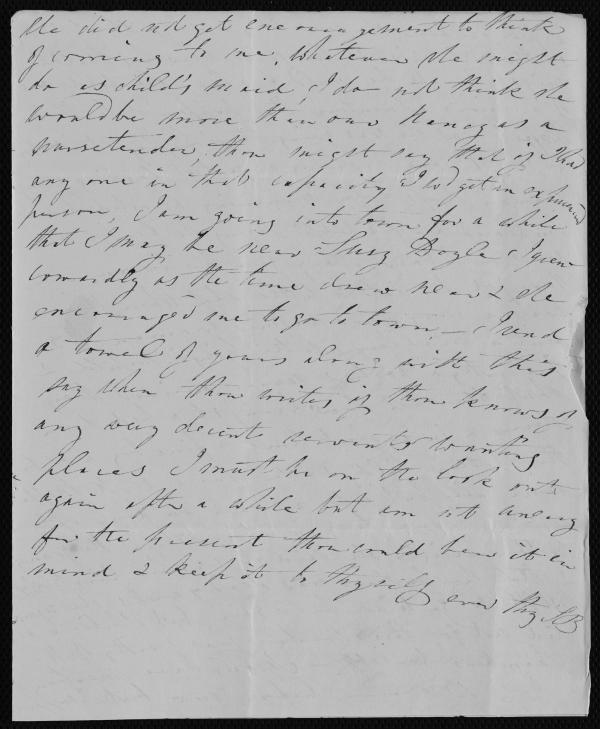 She did not get encouragement to think
of coming to me, whatever she might
do as child's maid, I do not think she
would be more than our Nancy as a
nursetender, thou might say that if I had
any one in that capacity I wd get an experienced
person, I am going into town for a while
that I may be near Suzy Boyle I grew
cowardly as the time drew near & she
encouraged me to go to town, — I send
a towel of yours along with this
say when thou writes if thou knows of
any very decent servants wanting
places I must be on the look out
again after a while but am not uneasy
for the present thou could bear it in
mind & keep it to thyself ever thy SB